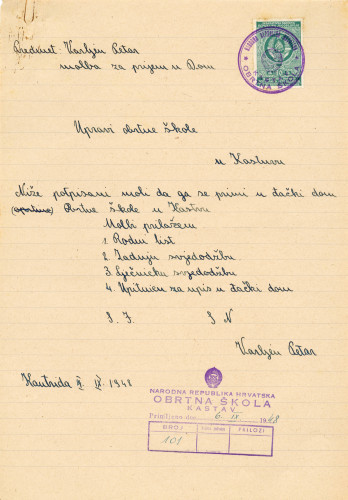 Predmet: Varljen Petar
molba za prijem u Dom
NARODNA REPUBLIKA HRVATSKA
OBRTNA ŠKOLA
KASTAV
Upravi obrtne škole
u Kastvu
Niže potpisani moli da ga se primi u đački dom
Obrtne škole u Kastvu
Molbi prilažem
1. Rodni list
2. Zadnju svjedodžbu
3 Lječničku svjedodžbu
4. Upitnicu za upis u đački dom
S. F. S N
Varljen Petar
IX 1948
NARODNA REPUBLIKA HRVATSKA
OBRTNA ŠKOLA
KASTAV
Primljeno dne 6. IX. 1948
BROJ PRILOZI
101